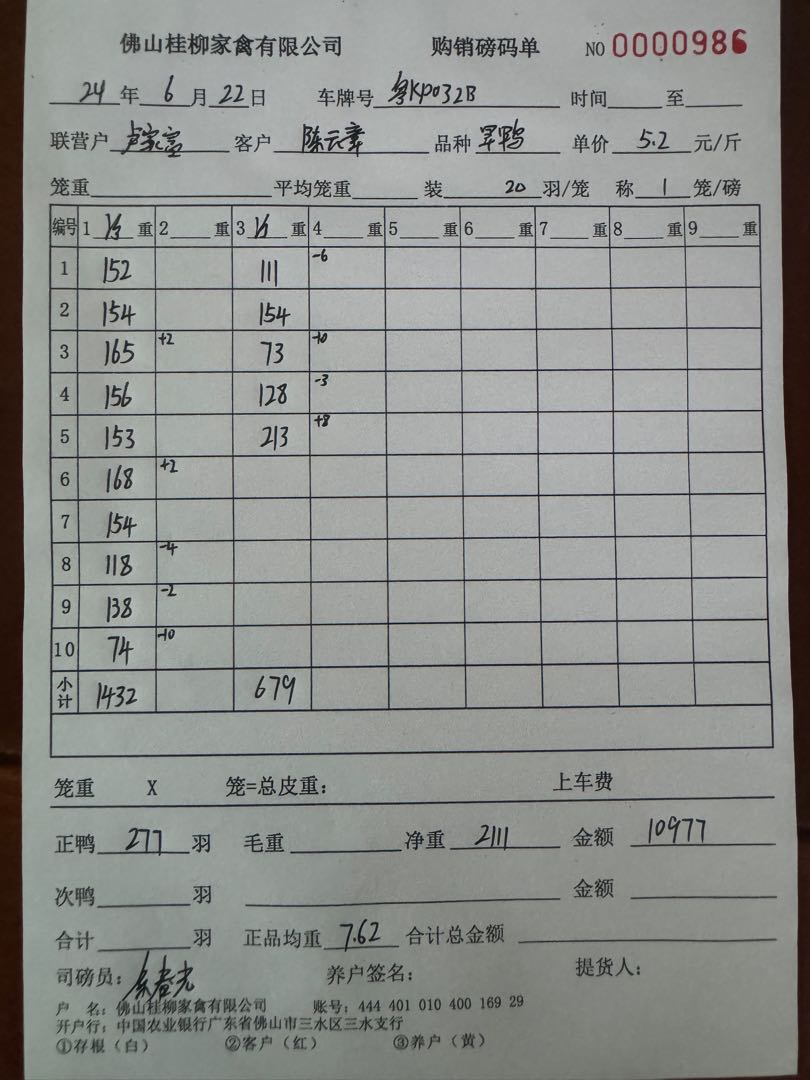 佛山桂柳家禽有限公司 购销磅码单 NO 0000986
24 年 6 月 22 日 车牌号 粤KP032B 时间 至
联营户 客户 陈云章 品种 旱鸭 单价 5.2 元/斤
笼重 平均笼重 装 20 羽/笼 称 1 笼/磅
编号 1 重 2 重 3 重 4 重 5 重 6 重 7 重 8 重 9 重
1 152 111 -6
2 154 154
3 165 +2 73 -10
4 156 128 -3
5 153 213 +8
6 168 +2
7 154
8 118 -4
9 138 -2
10 74 -10
小计 1432 679
笼重 X 笼=总皮重： 上车费
正鸭 277 羽 毛重 净重 2111 金额 10977
次鸭 羽 金额
合计 羽 正品均重 7.62 合计总金额
司磅员： 养户签名： 提货人：
户 名：佛山桂柳家禽有限公司 账号：444 401 010 400 169 29
开户行：中国农业银行广东省佛山市三水区三水支行
①存根（白） ②客户（红） ③养户（黄）